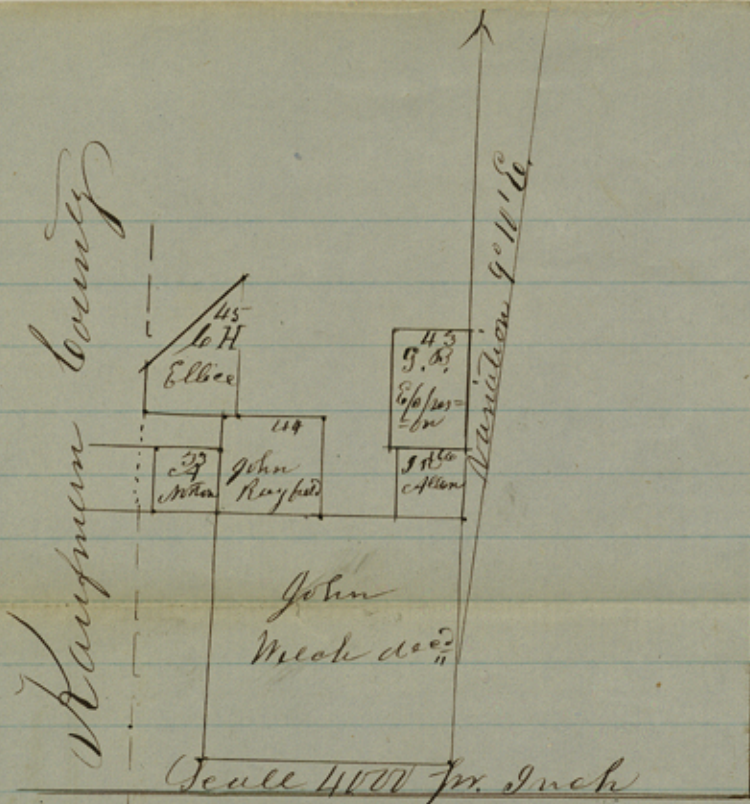 Kaufman County
Variation 9° 10' E.
45
C H
Ellice
43
J. B.
44
John
Rayfield
33
A
Norton
Allen
John
Welch dec'd
Scale 4000 pr. Inch